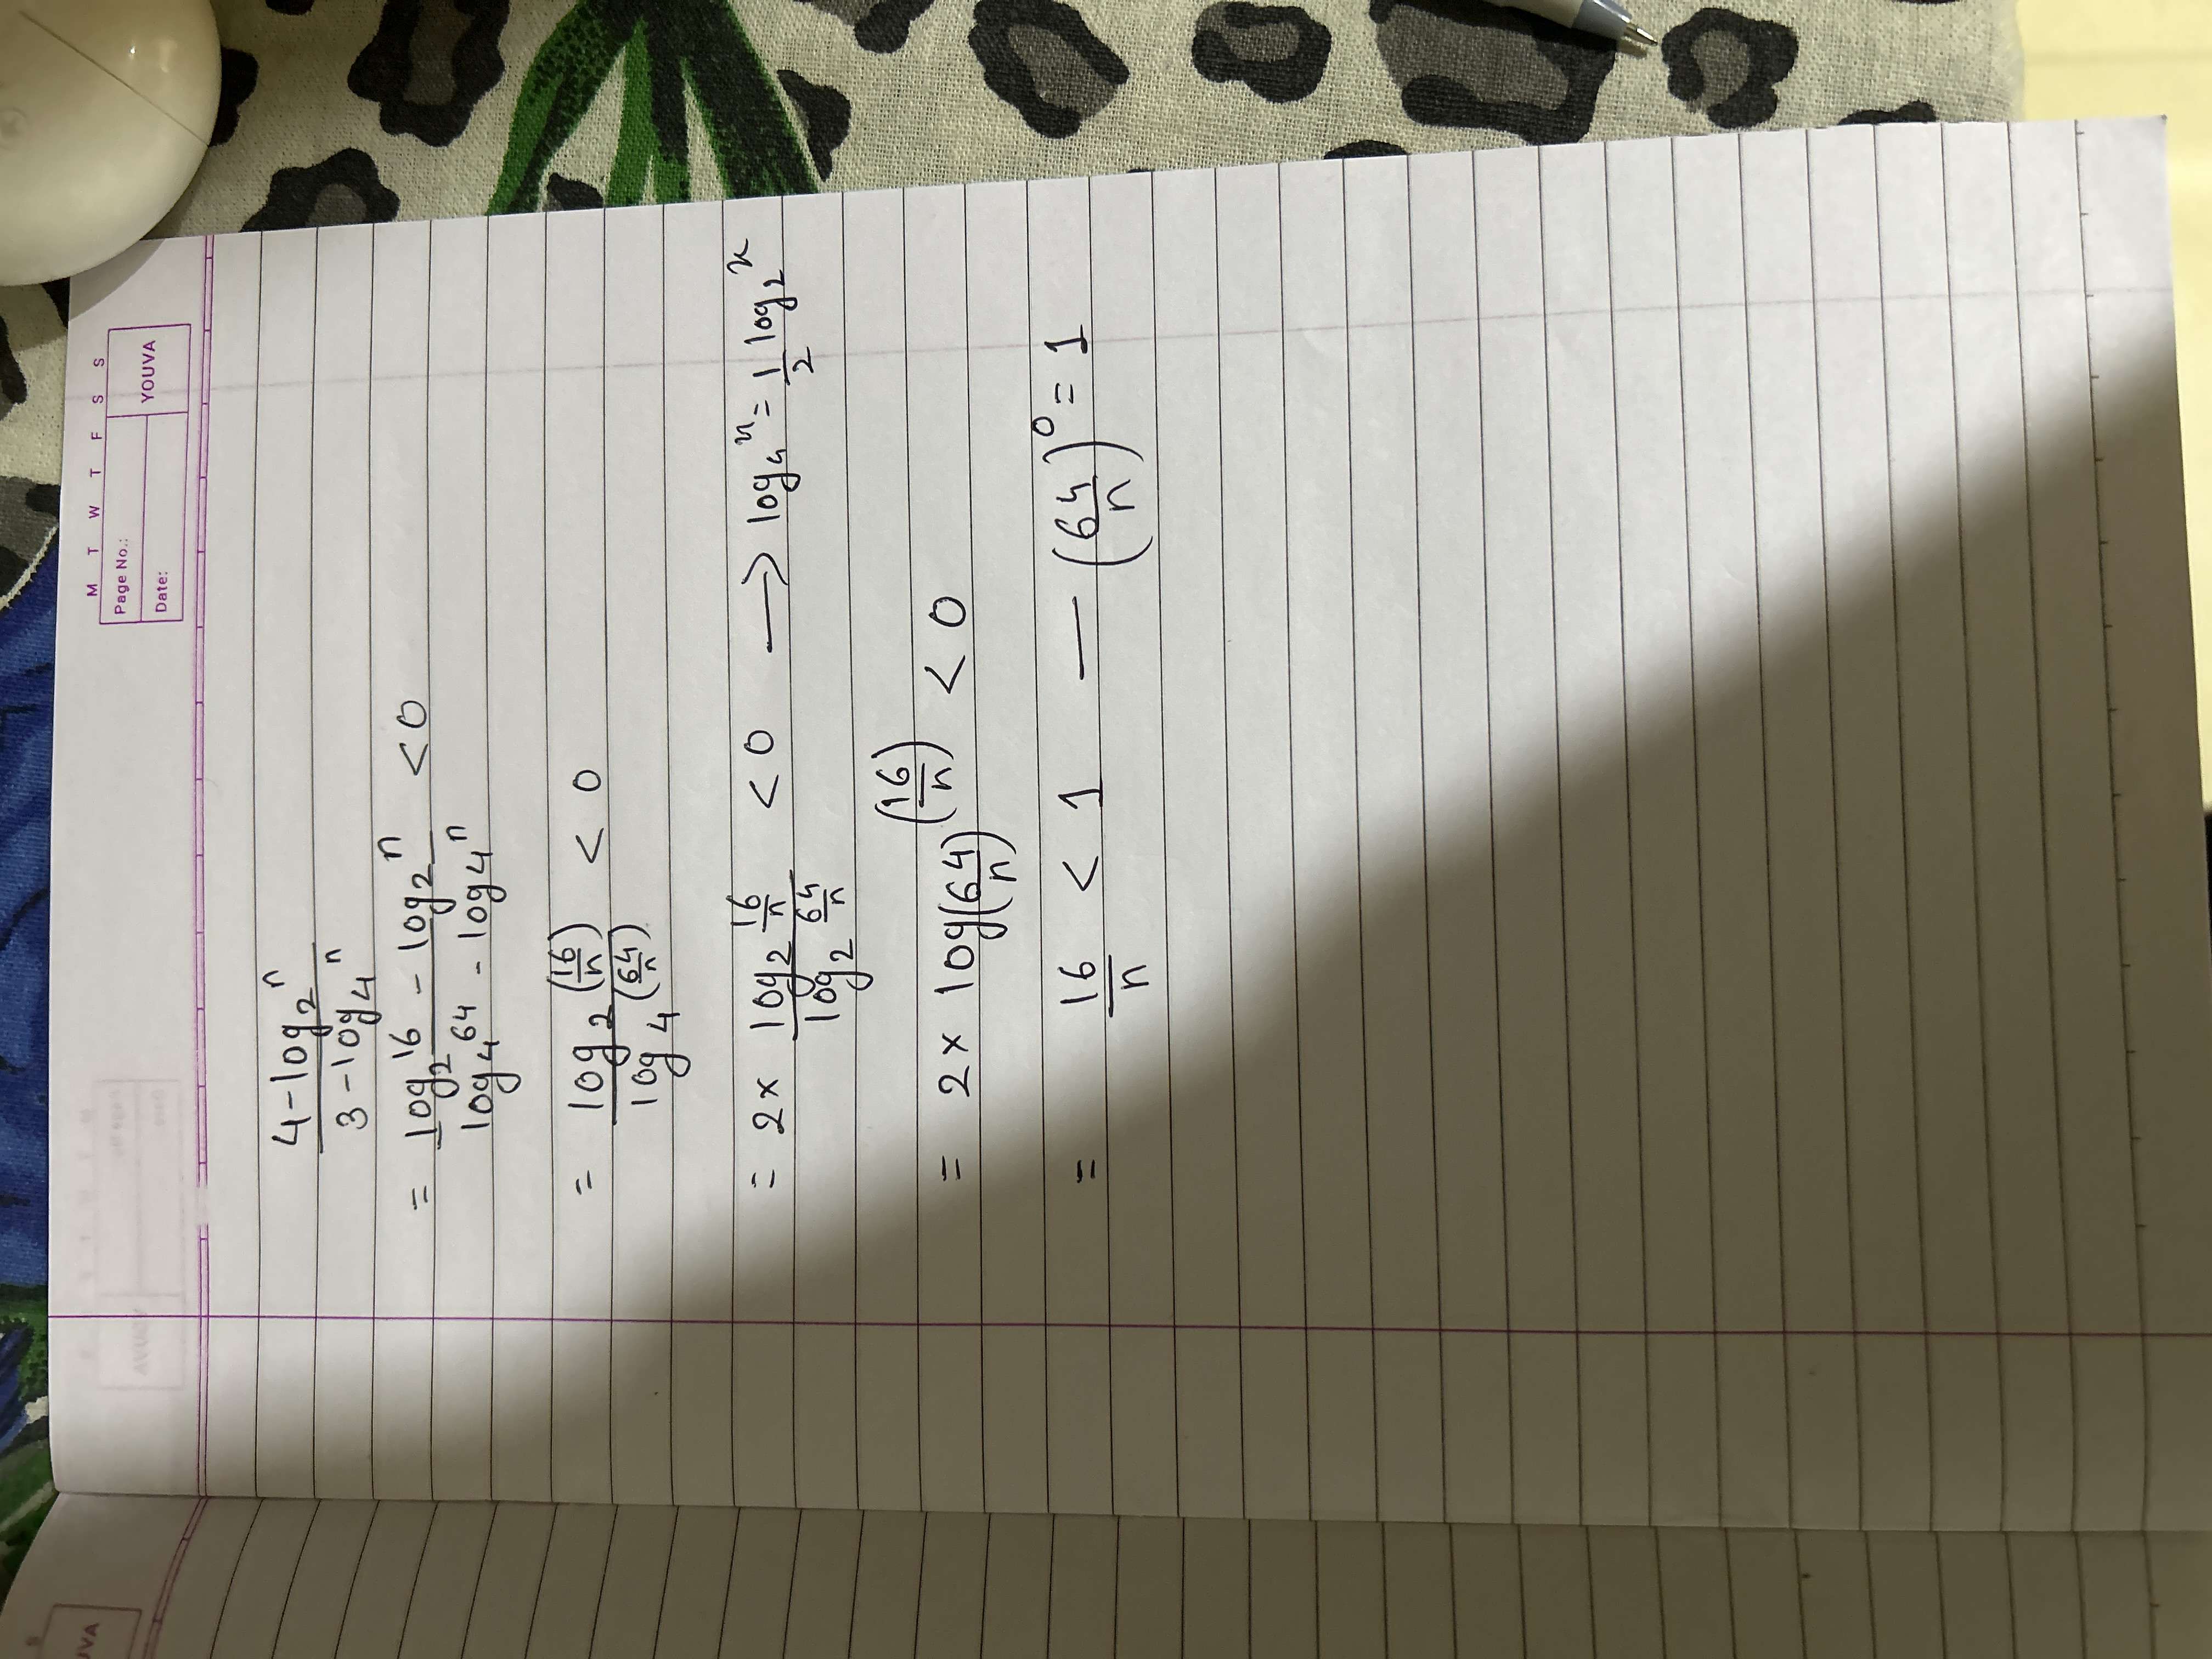 M T W T F S S
Page No.:
Date:
YOUVA
4 - log₂ⁿ
3 - log₄ⁿ
= log₂¹⁶ - log₂ⁿ < 0
log₄⁶⁴ - log₄ⁿ
= log₂(16/n) < 0
log₄(64/n)
= 2 × log₂ 16/n < 0 → log₄ˣ = 1/2 log₂ˣ
log₂ 64/n
= 2 × log(64/n) (16/n) < 0
= 16/n < 1 — (64/n)⁰ = 1
UVA